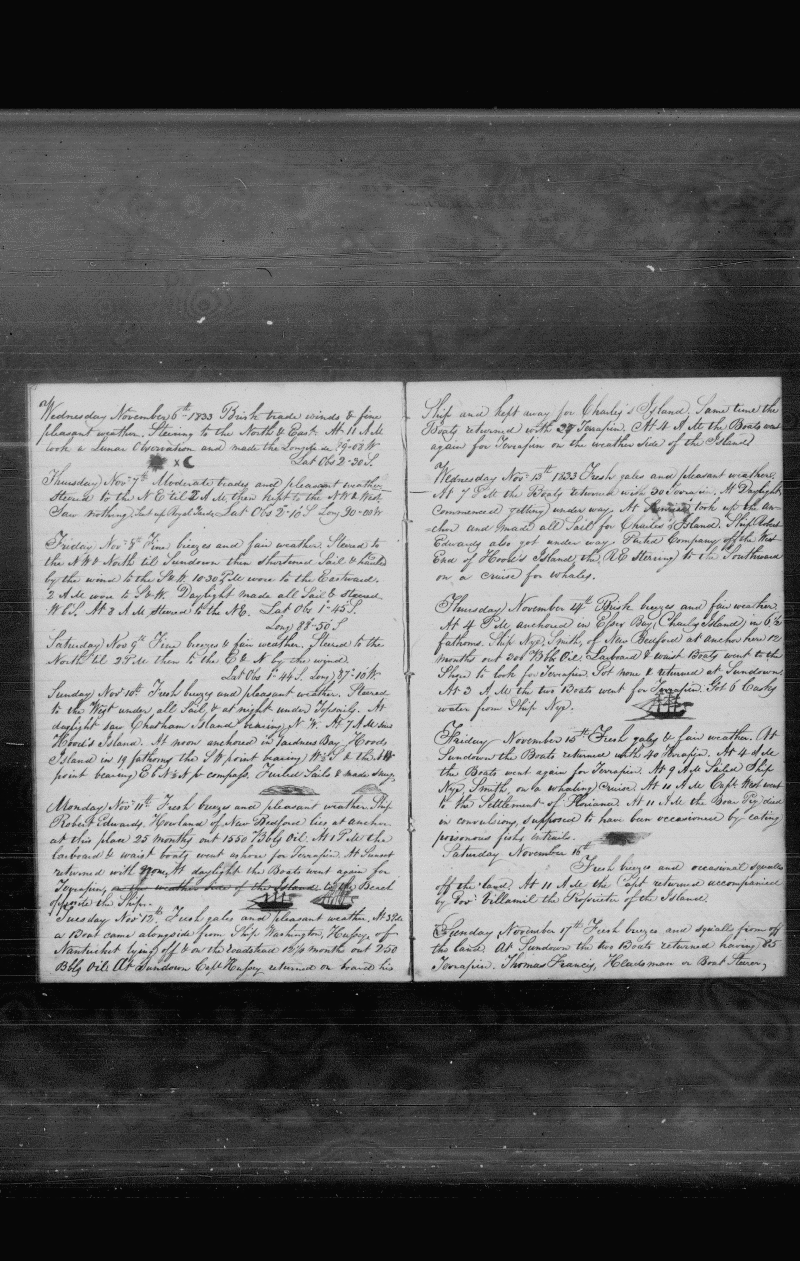 Wednesday November 6th 1833 Brisk trade winds & fine
pleasant weather. Steering to the North & East. At 11 A M
took a Lunar Observation and made the Longitude 89-02 W
Lat Obs 2-30 S.
Thursday Nov 7th Moderate trades and pleasant weather
steered to the N E til 2 A M then kept to the N W & West.
Saw nothing. Lat Obs 2-10 S Long 90-00 W
Friday Nov 8th Fine breezes and fair weather. Steered to
the N W & North til Sundown then shortened Sail & hauled
by the wind to the S W. 10 30 P M wore to the Eastward.
2 A M wore to S W. Daylight made all Sail & steered
W S. At 8 A M steered to the N E. Lat Obs 1-45 S.
Long 88-50 S
Saturday Nov 9th Fine breezes & fair weather. Steered to the
North til 2 P M then to the E & N by the wind.
Lat Obs 1-44 S. Long 87-10 W
Sunday Nov 10th Fresh breezes and pleasant weather. Steered
to the West under all Sail, & at night under Topsails. At
daylight saw Chatham Island bearing N. W. At 7 A M saw
Hood's Island. At noon anchored in Gardners Bay, Hoods
Island in 19 fathoms the S W point bearing W S & the N W
point bearing by compass. Furled Sails & made snug
Monday Nov 11th Fresh breezes and pleasant weather. Ship
Robert Edwards, Howland of New Bedford lies at anchor
at this place 25 months out 1550 Bbls Oil. At 1 P M the
larboard & waist boats went ashore for Terrapin. At Sunset
returned with At daylight the Boats went again for
Terrapin, on the weather side of the Island to the Beach
opposite the Ship.
Tuesday Nov 12th. Fresh gales and pleasant weather. At 3 P M
a Boat came alongside from Ship Washington, Hussey, of
Nantucket lying off & on the roadstead 12½ months out 250
Bbls Oil. At Sundown Capt Hussey returned on board his
Ship and kept away for Charles's Island. Same time the
Boats returned with 27 Terrapin. At 4 A M the Boats went
again for Terrapin on the weather side of the Island
Wednesday Nov 13th 1833 Fresh gales and pleasant weather.
At 7 P M the Boats returned with 30 Terrapin. At Daylight
commenced getting under way. At took up the an-
chor and made all Sail for Charles's Island. Ship Robert
Edwards also got under way. Parted Company off the West
End of Hood's Island, the R E Steering to the Southward
on a cruise for whales.
Thursday November 14th Brisk breezes and fair weather.
At 4 P M anchored in Essex Bay (Charles Island) in 6½
fathoms. Ship Nye, Smith, of New Bedford at anchor here 12
months out 300 Bbls Oil. Larboard & waist Boats went to the
Shore to look for Terrapin. Got none & returned at Sundown.
At 3 A M the two Boats went for Terrapin. Got 6 Casks
water from Ship Nye.
Friday November 15th Fresh gales & fair weather. At
Sundown the Boats returned with 40 Terrapin. At 4 A M
the Boats went again for Terrapin. At 9 A M Sailed Ship
Nye, Smith, on a whaling cruise. At 10 A M Capt West went
to the Settlement of Floriana. At 11 A M the Boar Pig died
in convulsions, supposed to have been occasioned by eating
poisonous fishes entrails.
Saturday November 16th
Fresh breezes and occasional squalls
off the land. At 11 A M the Capt returned accompanied
by Gov Villamil the Proprietor of the Island.
Sunday November 17th Fresh breezes and squalls from off
the land. At Sundown the two Boats returned having 85
Terrapin. Thomas Francis, Headsman or Boat Steerer,